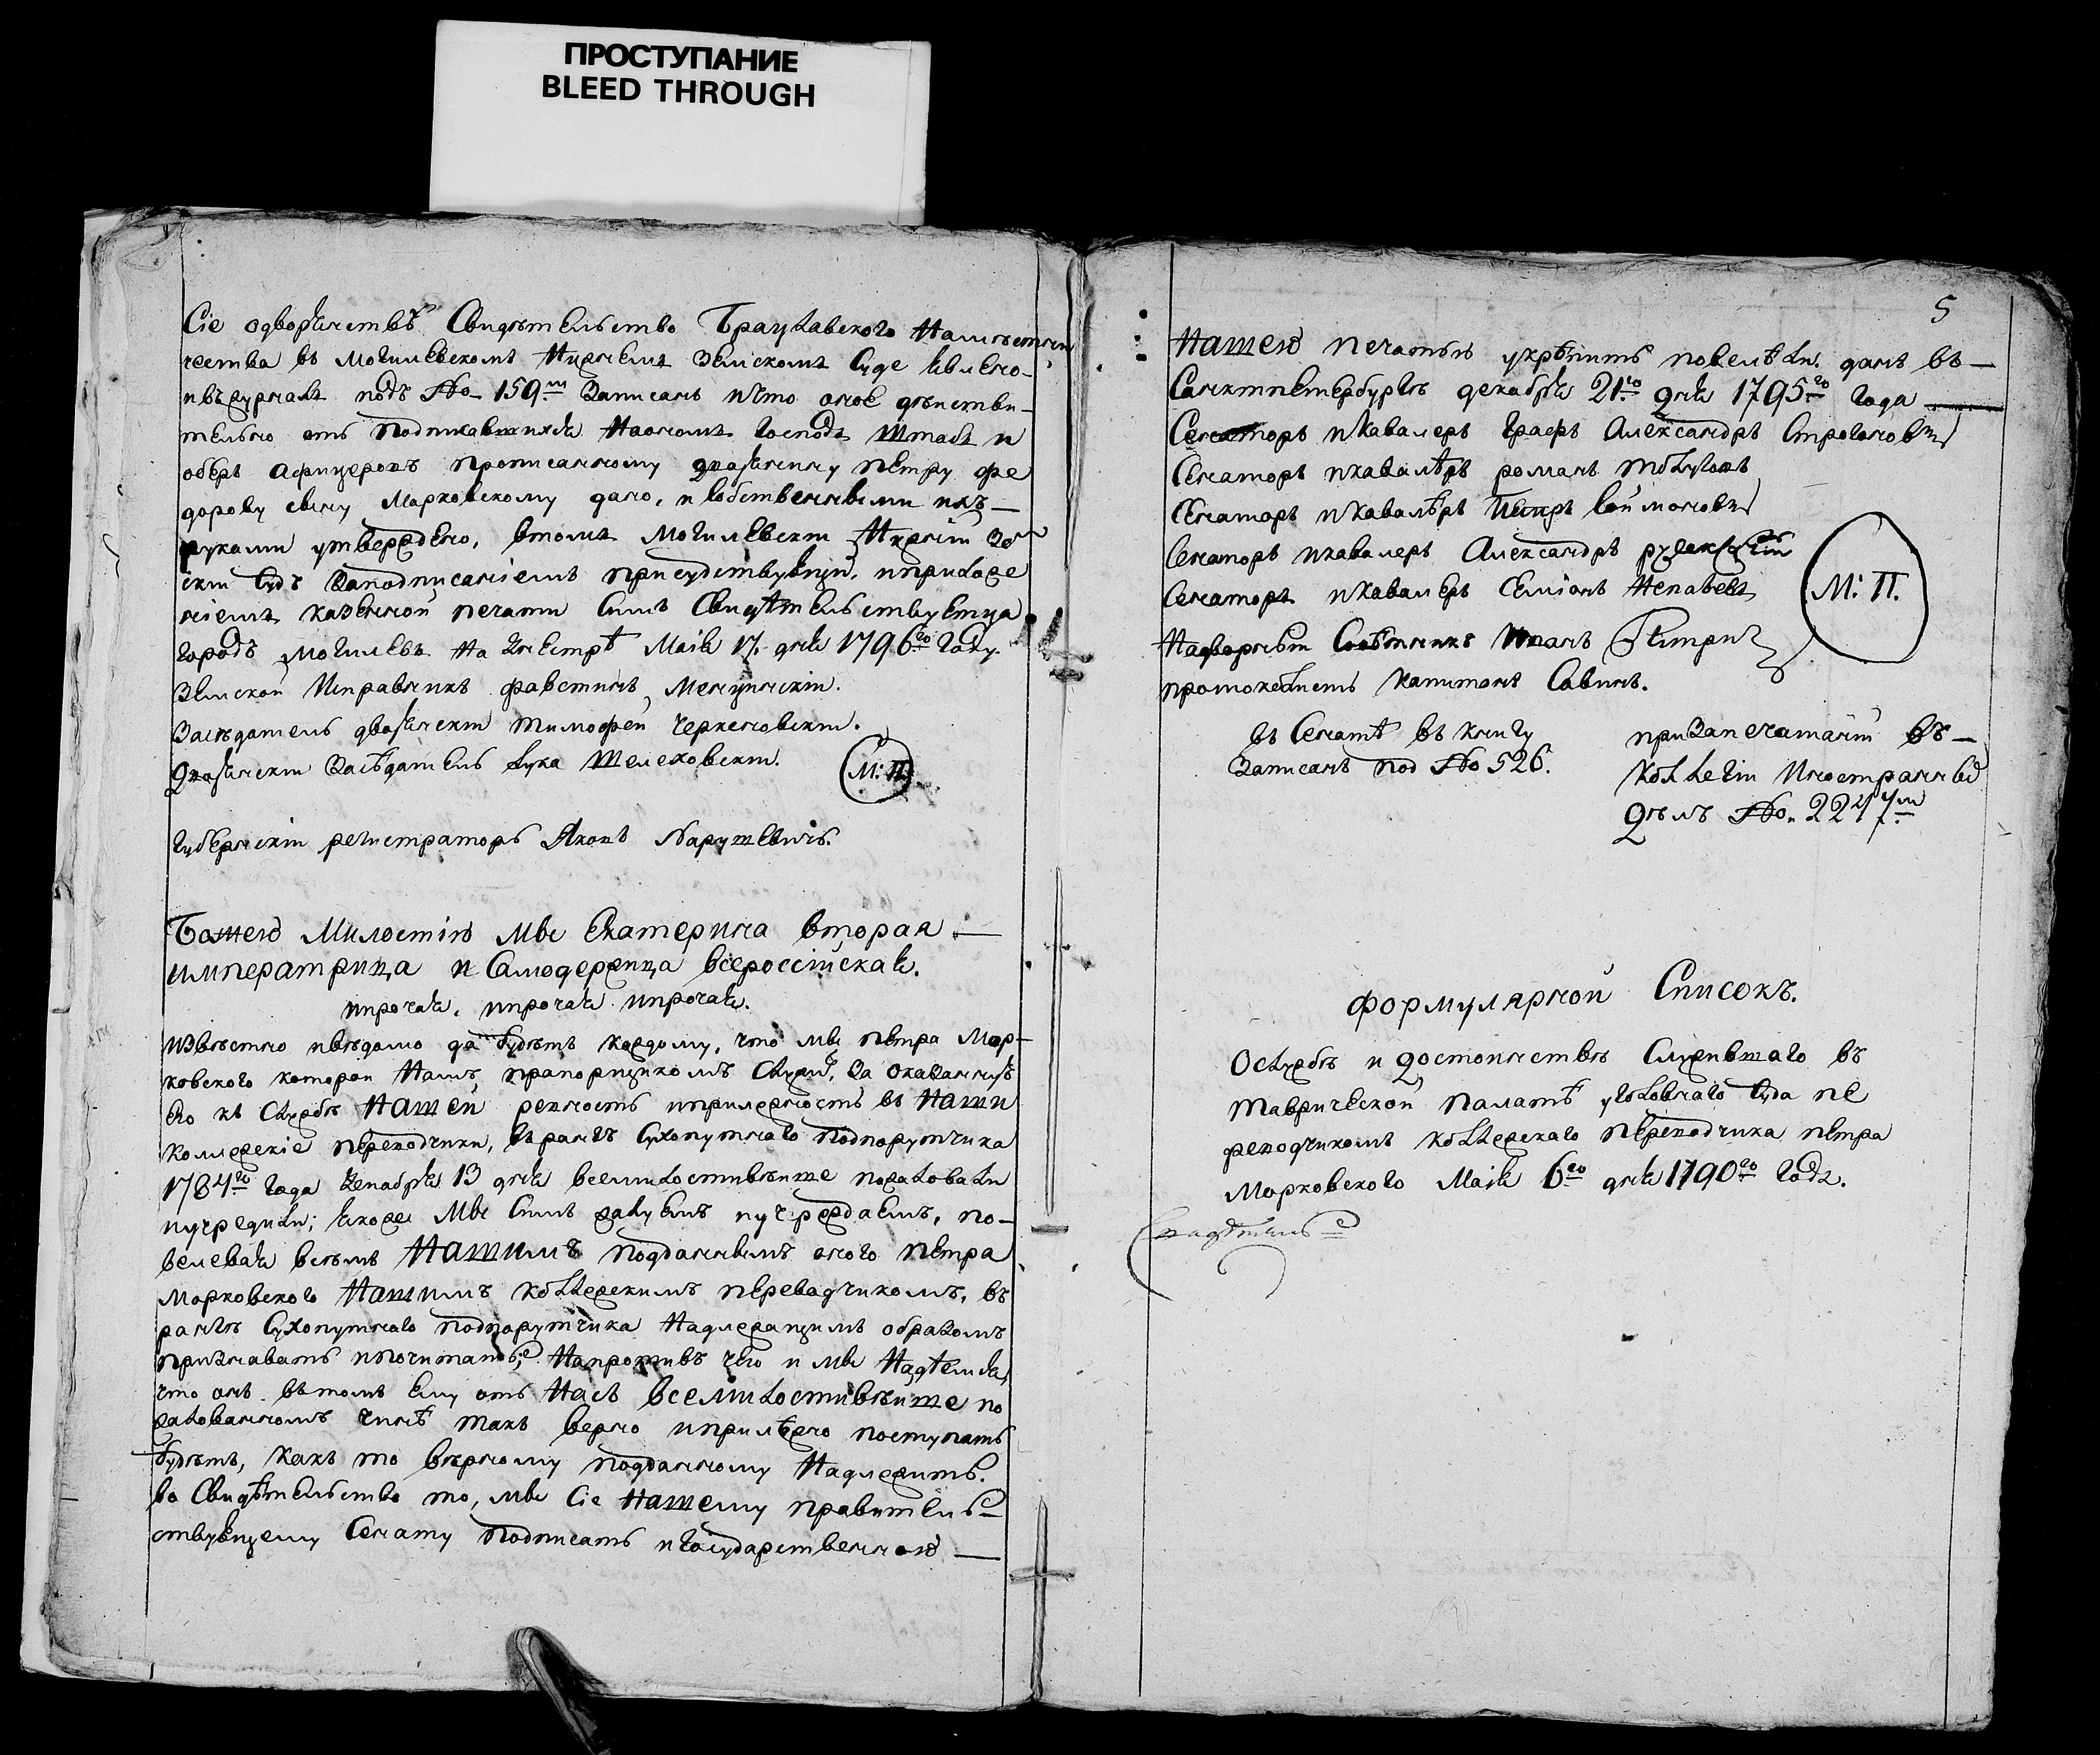 ПРОСТУПАНИЕ
BLEED THROUGH
Сіе одворянствѣ Свидѣтельство Брацлавского Намѣстни
чества въ могилевскомъ Нижнемъ Земскомъ Суде явлено
ивжурналъ подъ No 159м Записанъ ичто оное дѣистви-
тельно отъ подписавшихся Наономъ Господъ Штабъ и
оберъ афицеровъ прописанному дворянину петру фе
дорову сыну Марковскому дано, и собственными ихъ —
руками утверждено, втомъ Могилевски Нижніи Зем
ски Судъ Заподписаніемъ присудствующи, иприложе
ніемъ казенной печати Симъ Свидѣтельствуетца
городъ могилевъ На Днестрѣ Маія 17. дня 1796го Году
Земской Исправникъ фавстинъ Менчинскіи.
Засѣдатель дворянски тимофей чернеховски.
Дворянски Засѣдатель лука Шелеховски.
М: П:
Губернскіи регистраторъ Яковъ Нарушевичъ.
Божею Милостію мы Екатерина вторая —
императрица и Самодержица всероссійская.
ипрочая, ипрочая ипрочая.
извѣстно ивѣдомо да будетъ каждому, что мы петра Мар-
ковского которои Намъ прапорщикомъ служилъ, за оказанную
его къ службѣ Нашей ревность иприлежность въ Наши
коллежскіе переводчики, въ рангѣ Сухопутнаго подпорутчика
1784го года декабря 13 дня всемилостивѣише пожаловали
иучредили; якоже Мы Симъ жалуемъ иучреждаемъ, по-
велевая всѣмъ Нашимъ подданнымъ оного петра
марковского Нашимъ коллежскимъ перевадчикомъ, въ
рангѣ Сухопутнаго подпорутчика Надлежащимъ образомъ
признавать ипочитать; Напротивъ чего и мы Надѣемся,
что онъ вътомъ ему отъ Насъ всемилостивѣише по
жалованномъ чинѣ такъ верно иприлѣжно поступать
будетъ, какъ то вѣрному подданному Надлежитъ.
во Свидѣтельство то, мы Сіе Нашему правитель
ствующему Сенату подписать игосударственною —
5
Нашею печатью укрѣпить повелѣли. данъ въ —
Санктпетербургѣ декабря 21го дня 1795го года
Сенаторъ икавалеръ графъ Александръ Строгоновъ
Сенаторъ икавалѣръ романъ
Сенаторъ икавалѣръ Петръ Соймоновъ
Сенаторъ икавалеръ Александръ
Сенаторъ икавалеръ
М: П.
Надворны Совѣтникъ Иванъ
протоколистъ Капитонъ Савинъ.
въ Сенатѣ въ книгу
Записанъ под No 526.
призапечатаніи въ —
коллегіи Иностранны
Дѣлъ No. 2247м
формулярной Списокъ.
Ослужбѣ и достоинствѣ Служившаго въ
таврической палатѣ уголовнаго Суда пе
реводчикомъ коллежкаго переводчика петра
Марковского Маія 6го дня 1790го Года.